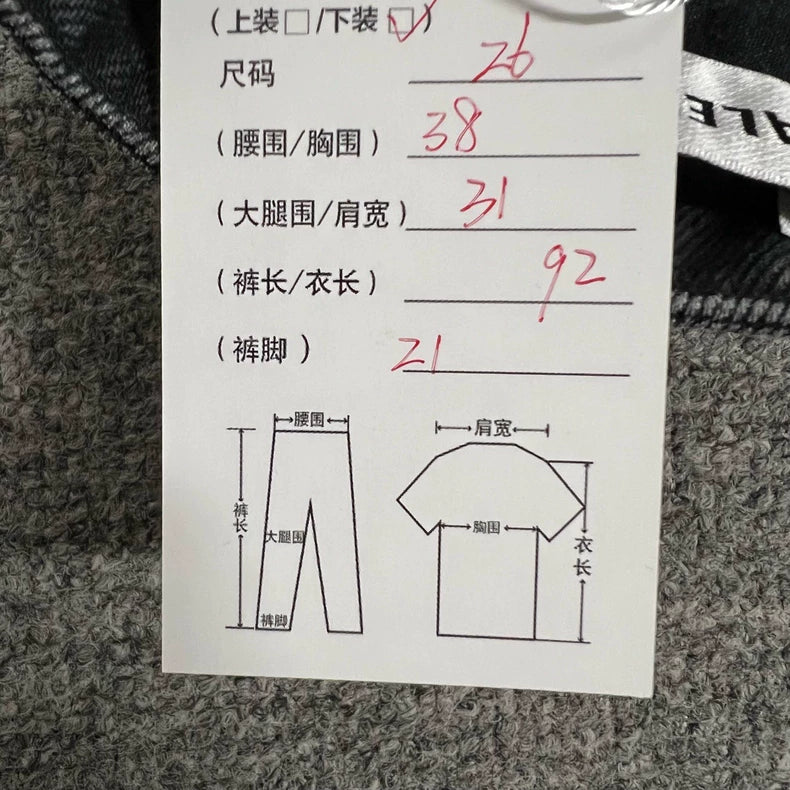 (上装□/下装☑)
尺码 26
(腰围/胸围) 38
(大腿围/肩宽) 31
(裤长/衣长) 92
(裤脚) 21
腰围
裤长
大腿围
裤脚
肩宽
胸围
衣长